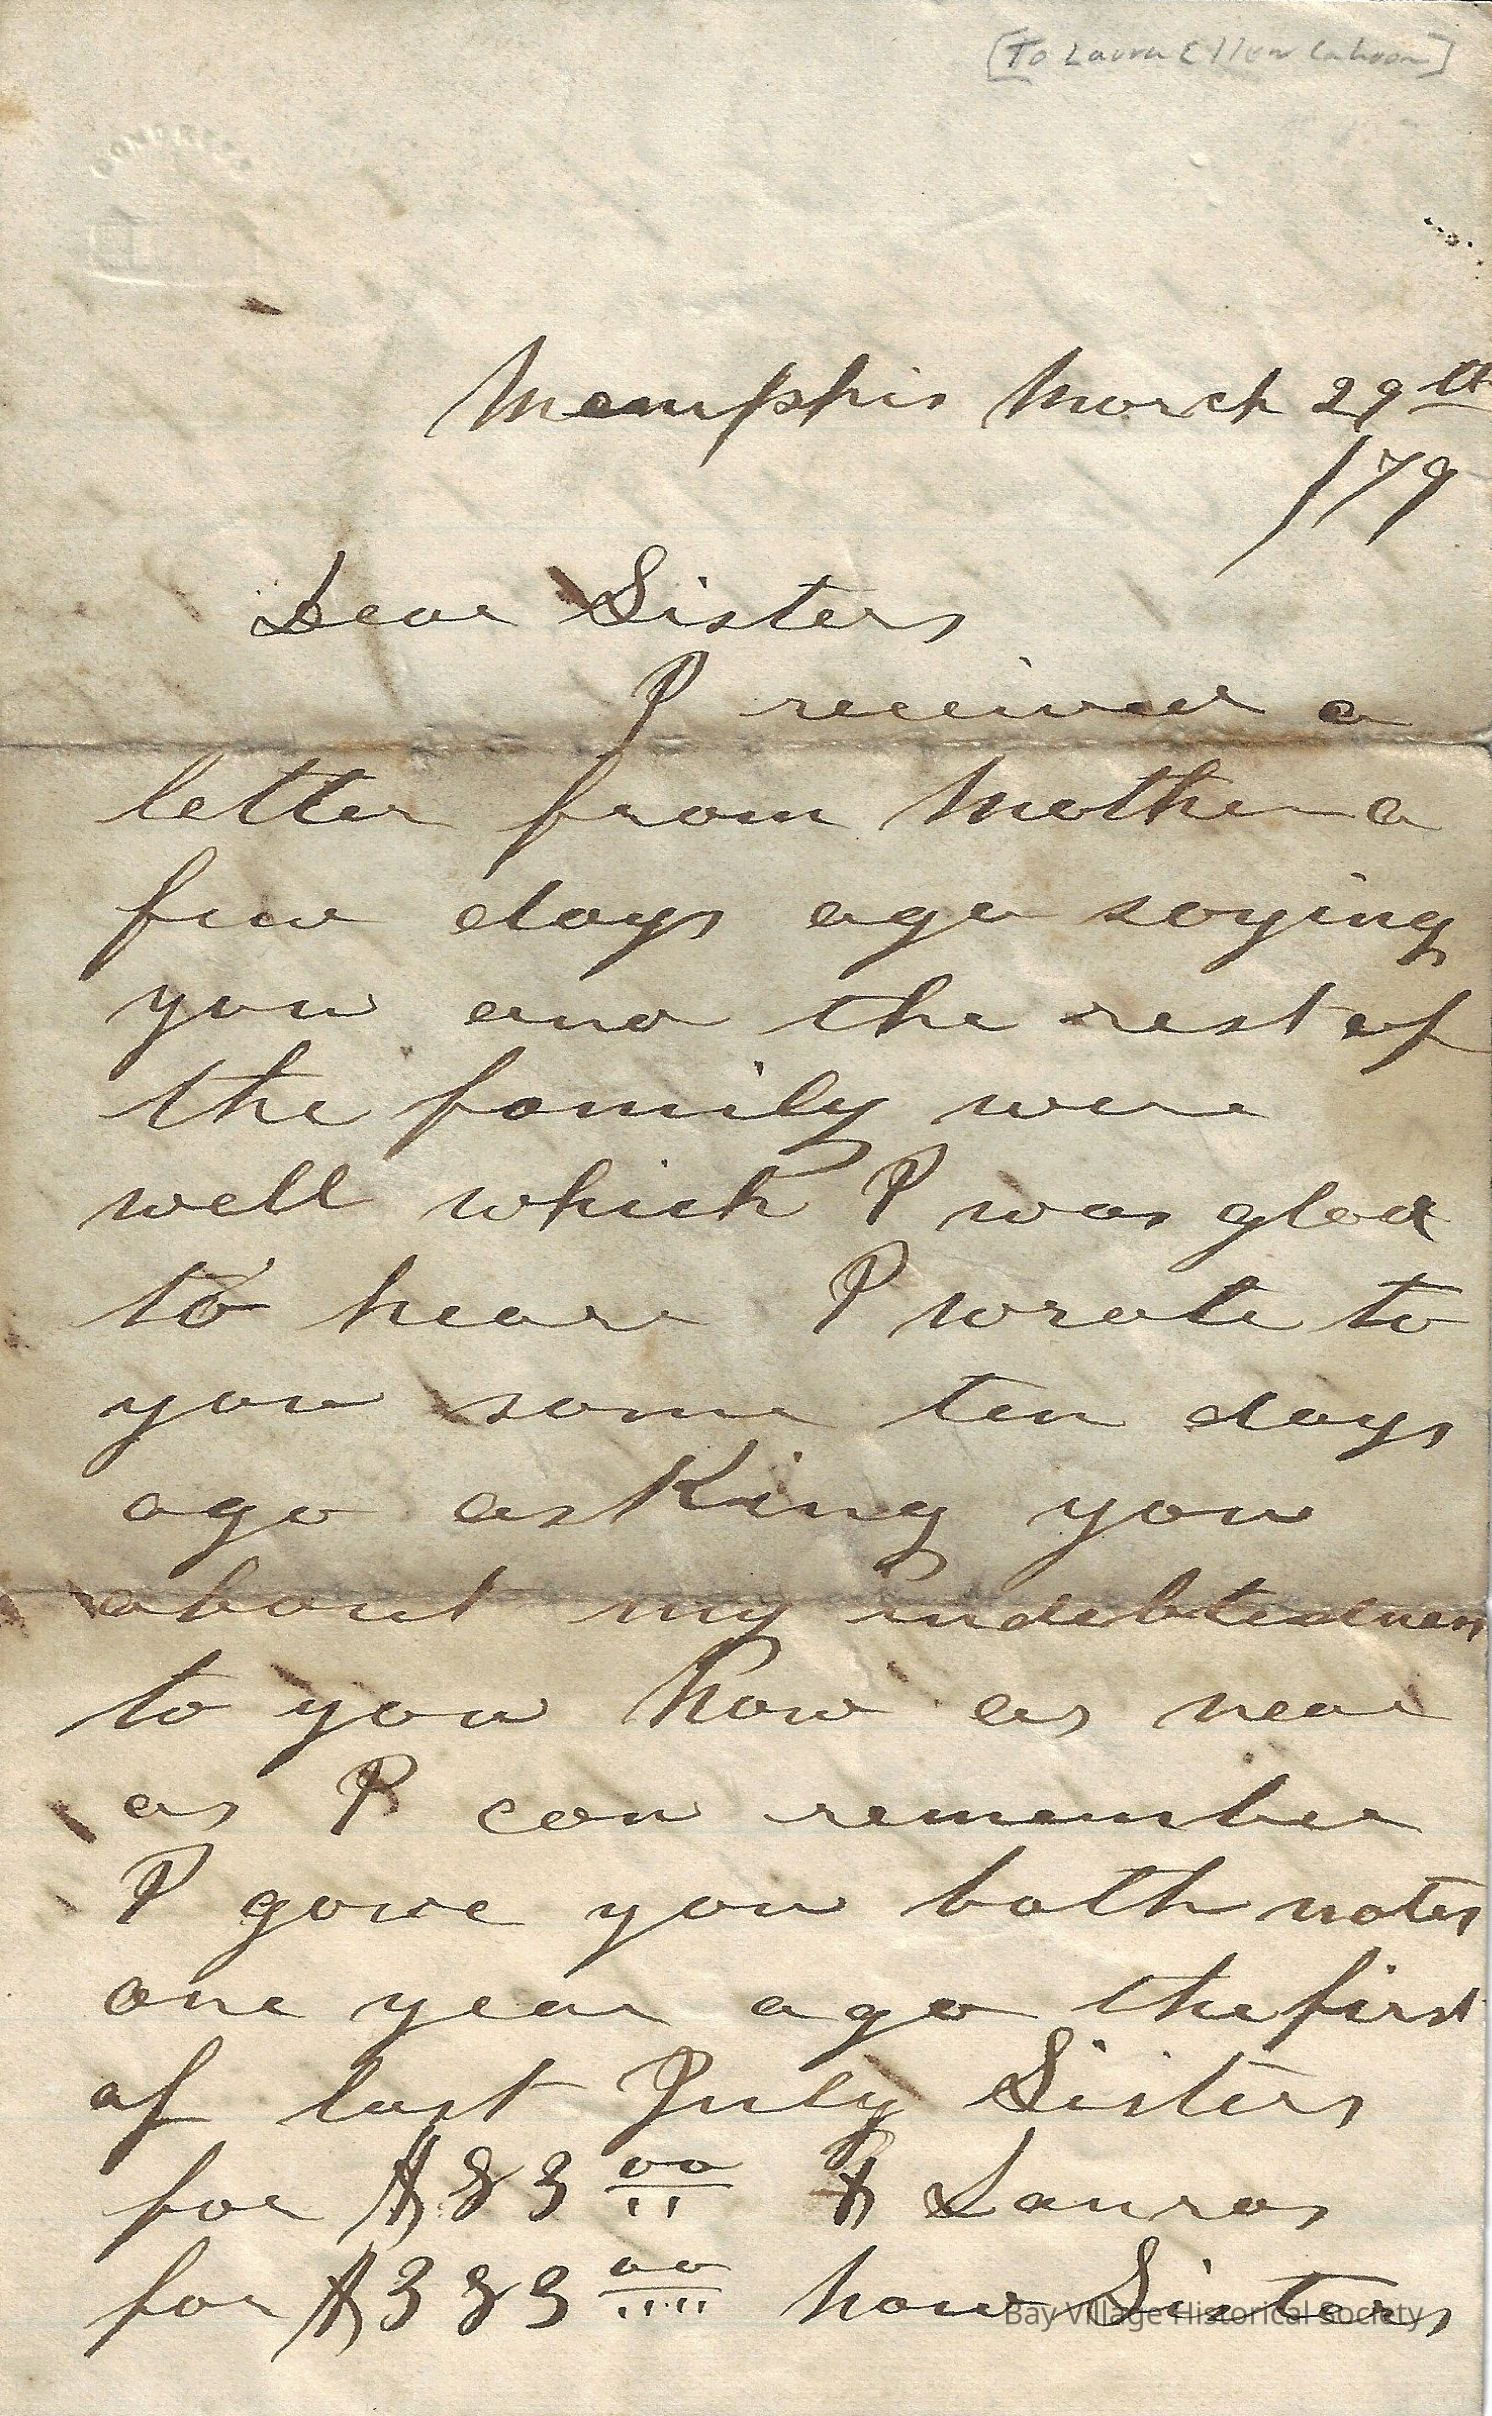 [To Laura Ellen Cahoon]
Memphis March 29th
/79
Dear Sisters
I received a
letter from Mother a
few days ago saying
you and the rest of
the family were
well which I was glad
to hear I wrote to
you some ten days
ago asking you
about my indebtedness
to you how as near
as I can remember
I gave you both notes
one year ago the first
of last July Sisters
for $83 00 & Lauras
for $383 00 how Sisters
Bay Village Historical Society